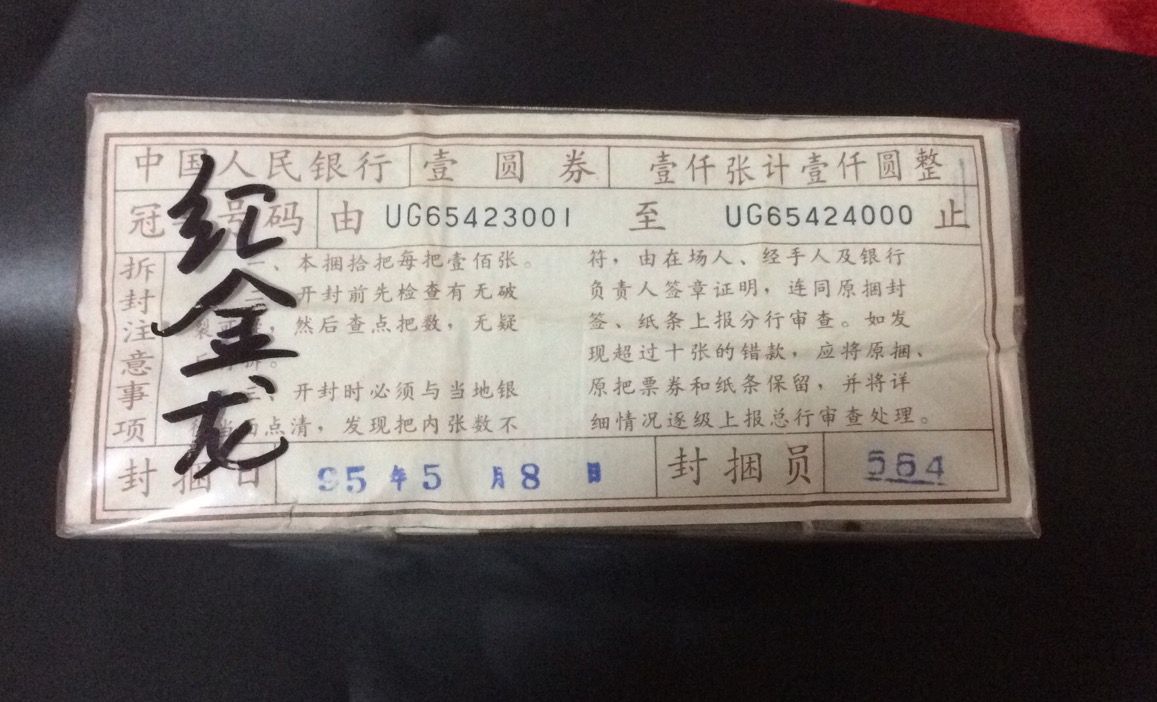 中国人民银行 壹圆券 壹仟张计壹仟圆整
冠 号码 由 UG65423001 至 UG65424000 止
拆封注意事项
一、本捆拾把每把壹佰张。
二、开封前先检查有无破
裂 ,然后查点把数,无疑
后 拆。
三、开封时必须与当地银
点清,发现把内张数不
符,由在场人、经手人及银行
负责人签章证明,连同原捆封
签、纸条上报分行审查。如发
现超过十张的错款,应将原捆、
原把票券和纸条保留,并将详
细情况逐级上报总行审查处理。
封捆日 95年5月8日 封捆员 564
红金龙